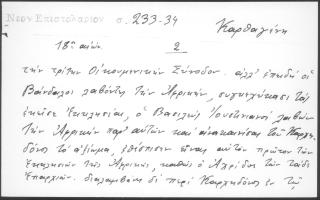 Νεον Επιστολαριον σ. 233-34 Καρθαγένη
18ος αιών. 2
τὴν τρίτην Οἰκουμενικὴν Σύνοδον. ἀλλ' ἐπειδὴ οἱ
Βάνδαλοι λαβόντες τὴν Ἀφρικὴν,
ἐκεῖσε Ἐκκλησίας, ὁ Βασιλεὺς Ἰουστινιανὸς λαβὼν
τὴν Ἀφρικὴν παρ' αὐτῶν καὶ ἀνακαινίσας τοῦ Καρχη-
δόνος τὸ ἀξίωμα, ἐθέσπισεν εἶναι αὐτὸν πρῶτον τῶν
Ἐκκλησιῶν τῆς Ἀφρικῆς, καθὼς ὁ Ἀχρίδος τῶν
Ἐπαρχιῶν. διαλαμβάνει δὲ περὶ Καρχηδόνος ἐν τῷ